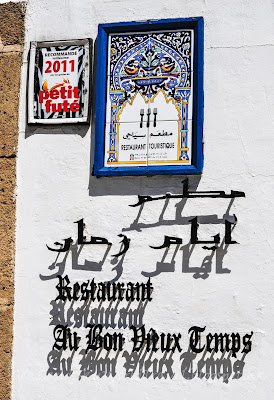 RECOMMANDÉ
2011
petit
futé
مطعم سياحي
RESTAURANT TOURISTIQUE
مطعم
أيام زمان
Restaurant
Au Bon Vieux Temps